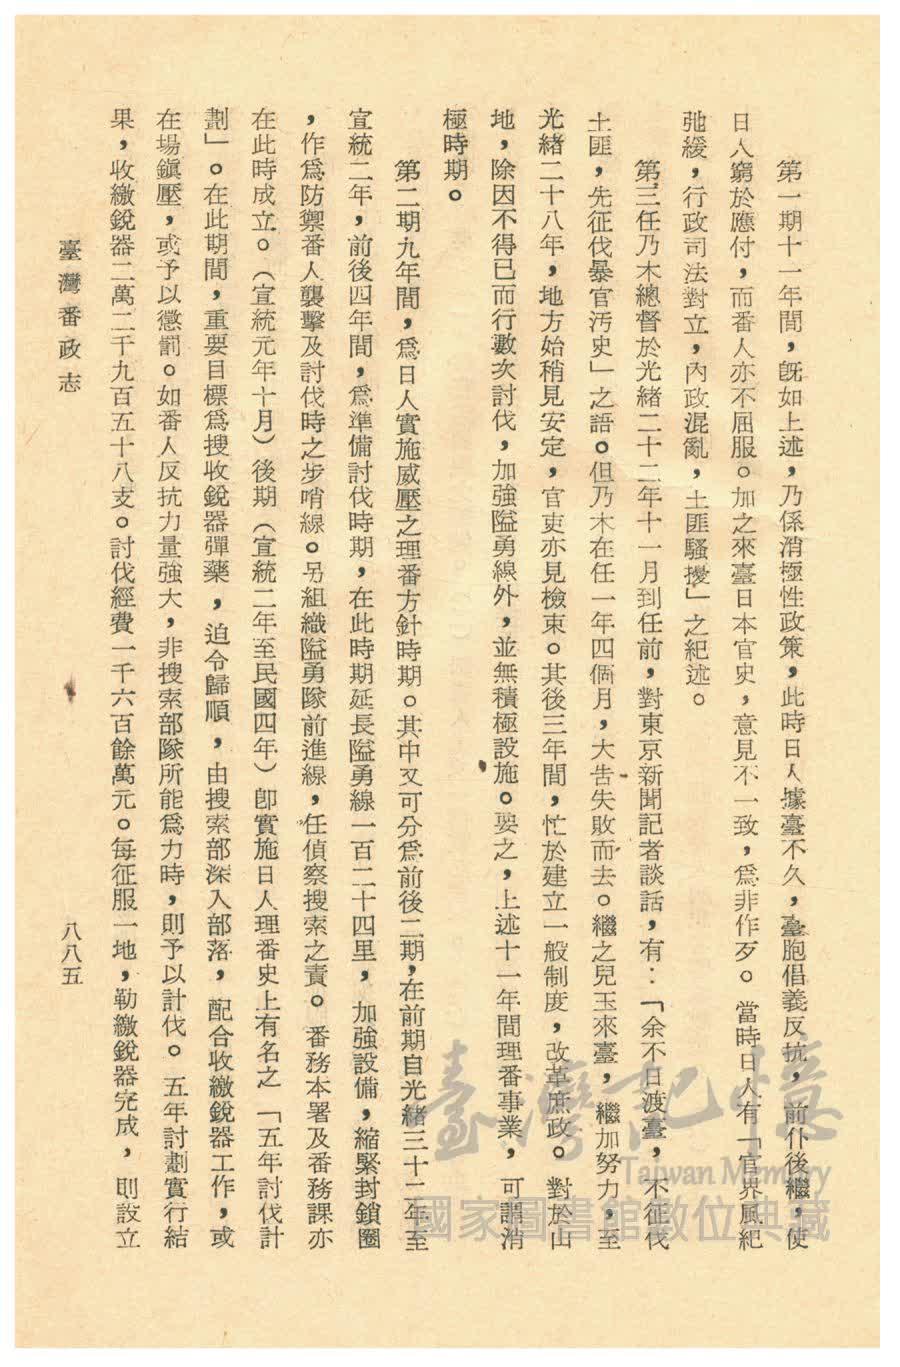 第一期十一年間，旣如上述，乃係消極性政策，此時日人據臺不久，臺胞倡義反抗，前仆後繼，使
日人窮於應付，而番人亦不屈服。加之來臺日本官吏，意見不一致，爲非作歹。當時日人有「官界風紀
弛緩，行政司法對立，內政混亂，土匪騷擾」之紀述。
第三任乃木總督於光緒二十二年十一月到任前，對東京新聞記者談話，有：「余不日渡臺，不征伐
土匪，先征伐暴官汚吏」之語。但乃木在任一年四個月，大吿失敗而去。繼之兒玉來臺，繼加努力，至
光緒二十八年，地方始稍見安定，官吏亦見檢束。其後三年間，忙於建立一般制度，改革庶政。對於山
地，除因不得已而行數次討伐，加強隘勇線外，並無積極設施。要之，上述十一年間理番事業，可謂消
極時期。
第二期九年間，爲日人實施威壓之理番方針時期。其中又可分爲前後二期，在前期自光緒三十二年至
宣統二年，前後四年間，爲準備討伐時期，在此時期延長隘勇線一百二十四里，加強設備，縮緊封鎖圈
，作爲防禦番人襲擊及討伐時之步哨線。另組織隘勇隊前進線，任偵察搜索之責。番務本署及番務課亦
在此時成立。（宣統元年十月）後期（宣統二年至民國四年）卽實施日人理番史上有名之「五年討伐計
劃」。在此期間，重要目標爲搜收銳器彈藥，迫令歸順，由搜索部深入部落，配合收繳銳器工作，或
在場鎭壓，或予以懲罰。如番人反抗力量強大，非搜索部隊所能爲力時，則予以計伐。五年討劃實行結
果，收繳銳器二萬二千九百五十八支。討伐經費一千六百餘萬元。每征服一地，勒繳銳器完成，則設立
臺灣番政志
八八五
臺灣記憶
Taiwan Memory
國家圖書館數位典藏